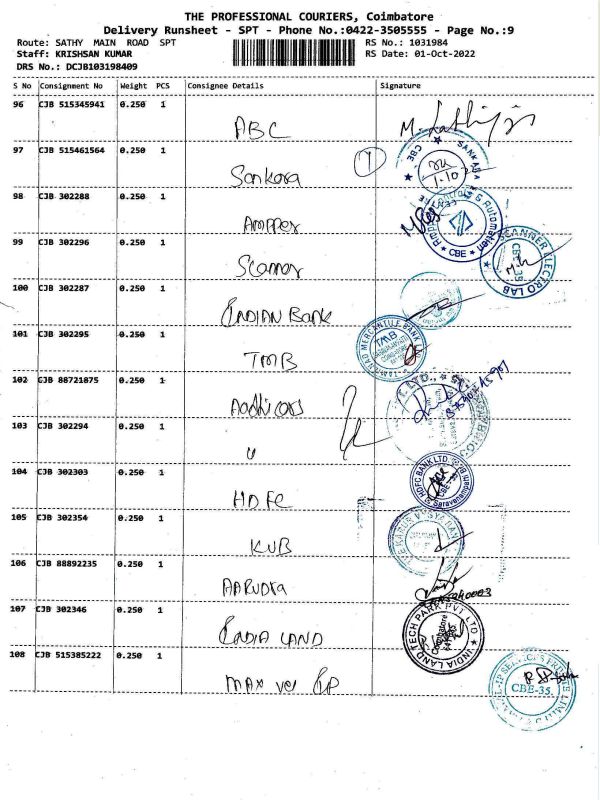 THE PROFESSIONAL COURIERS, Coimbatore
Delivery Runsheet - SPT - Phone No.:0422-3505555 - Page No.:9
Route: SATHY MAIN ROAD SPT RS No.: 1031984
Staff: KRISHSAN KUMAR RS Date: 01-Oct-2022
DRS No.: DCJB103198409
S No Consignment No Weight PCS Consignee Details Signature
96 CJB 515345941 0.250 1
ABC
97 CJB 515461564 0.250 1
Sankara 1
SANKARA CBE
1.10
98 CJB 302288 0.250 1
Amppex
& Automation CBE
99 CJB 302296 0.250 1
Scanner
SCANNER ELECTRO LAB CBE-35
100 CJB 302287 0.250 1
INDIAN Bank
101 CJB 302295 0.250 1
TMB
MERCANTILE BANK TMB
102 CJB 88721875 0.250 1
103 CJB 302294 0.250 1
104 CJB 302303 0.250 1
HDFC
HDFC BANK LTD Saravanampatti
105 CJB 302354 0.250 1
KVB
KARUR VYSYA BANK
106 CJB 88892235 0.250 1
AARUDRA
107 CJB 302346 0.250 1
INDIA LAND
INDIA LAND TECH PARK PVT LTD Coimbatore
108 CJB 515385222 0.250 1
MAX
CBE-35.